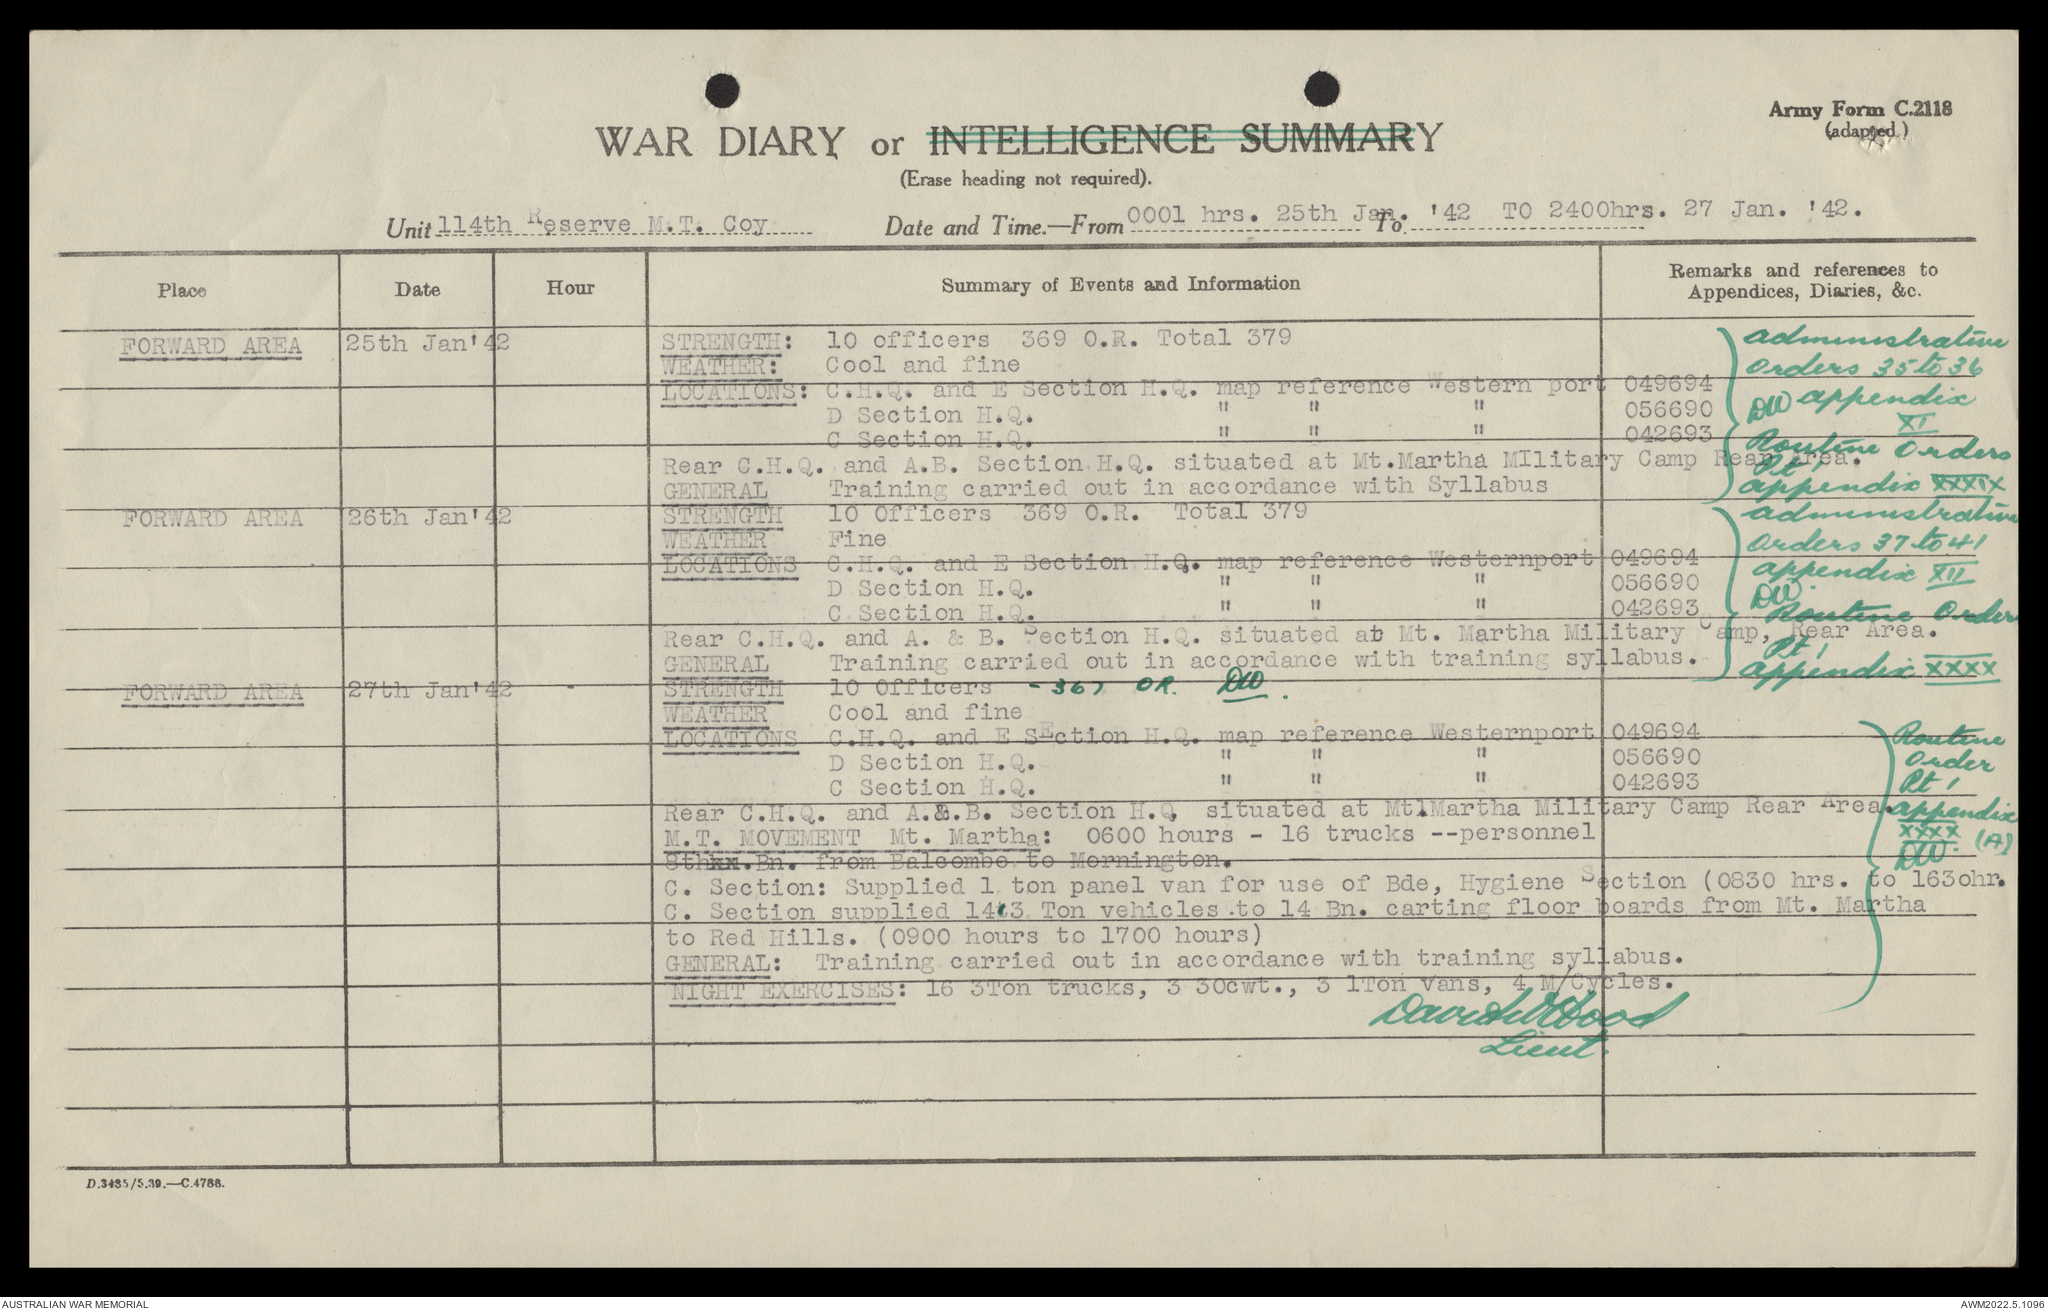 Army Form C.2118
(adapted)
WAR DIARY or INTELLIGENCE SUMMARY
(Erase heading not required).
Unit 114th Reserve M.T. Coy Date and Time.—From 0001 hrs. 25th Jan. '42 To TO 2400hrs. 27 Jan. '42.
Place Date Hour Summary of Events and Information Remarks and references to
Appendices, Diaries, &c.
FORWARD AREA 25th Jan'42 STRENGTH: 10 officers 369 O.R. Total 379
WEATHER: Cool and fine
LOCATIONS: C.H.Q. and E Section H.Q. map reference Western port 049694
D Section H.Q. " " " 056690
C Section H.Q. " " " 042693
Rear C.H.Q. and A.B. Section H.Q. situated at Mt.Martha MIlitary Camp Rear Area.
GENERAL Training carried out in accordance with Syllabus
administrative
orders 35 to 36
DW appendix
XI
Routine Orders
Pt 1
appendix XXXIX
FORWARD AREA 26th Jan'42 STRENGTH 10 Officers 369 O.R. Total 379
WEATHER Fine
LOCATIONS C.H.Q. and E Section H.Q. map reference Westernport 049694
D Section H.Q. " " " 056690
C Section H.Q. " " " 042693
Rear C.H.Q. and A. & B. Section H.Q. situated at Mt. Martha Military Camp, Rear Area.
GENERAL Training carried out in accordance with training syllabus.
administrative
orders 37 to 41
appendix XII
DW.
Routine Order
Pt 1
appendix XXXX
FORWARD AREA 27th Jan'42 STRENGTH 10 Officers - 367 OR. DW.
WEATHER Cool and fine
LOCATIONS C.H.Q. and E SEction H.Q. map reference Westernport 049694
D Section H.Q. " " " 056690
C Section H.Q. " " " 042693
Rear C.H.Q. and A.&.B. Section H.Q. situated at Mt.Martha Military Camp Rear Area.
M.T. MOVEMENT Mt. Martha: 0600 hours - 16 trucks --personnel
8thxx.Bn. from Balcombe to Mornington.
C. Section: Supplied 1 ton panel van for use of Bde, Hygiene Section (0830 hrs. to 1630hr.
C. Section supplied 14t3 Ton vehicles .to 14 Bn. carting floor boards from Mt. Martha
to Red Hills. (0900 hours to 1700 hours)
GENERAL: Training carried out in accordance with training syllabus.
NIGHT EXERCISES: 16 3Ton trucks, 3 30cwt., 3 1Ton Vans, 4 M/Cycles.
Routine
Order
Pt 1
appendix
XXXX
(A)
DW.
David W Wood
Lieut.
D.3485/5.39.—C.4788.
AUSTRALIAN WAR MEMORIAL
AWM2022.5.1096